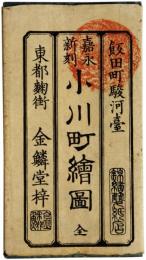 飯田町駿河臺
嘉永新刻
小川町繪圖 全
東都麹街 金鱗堂梓